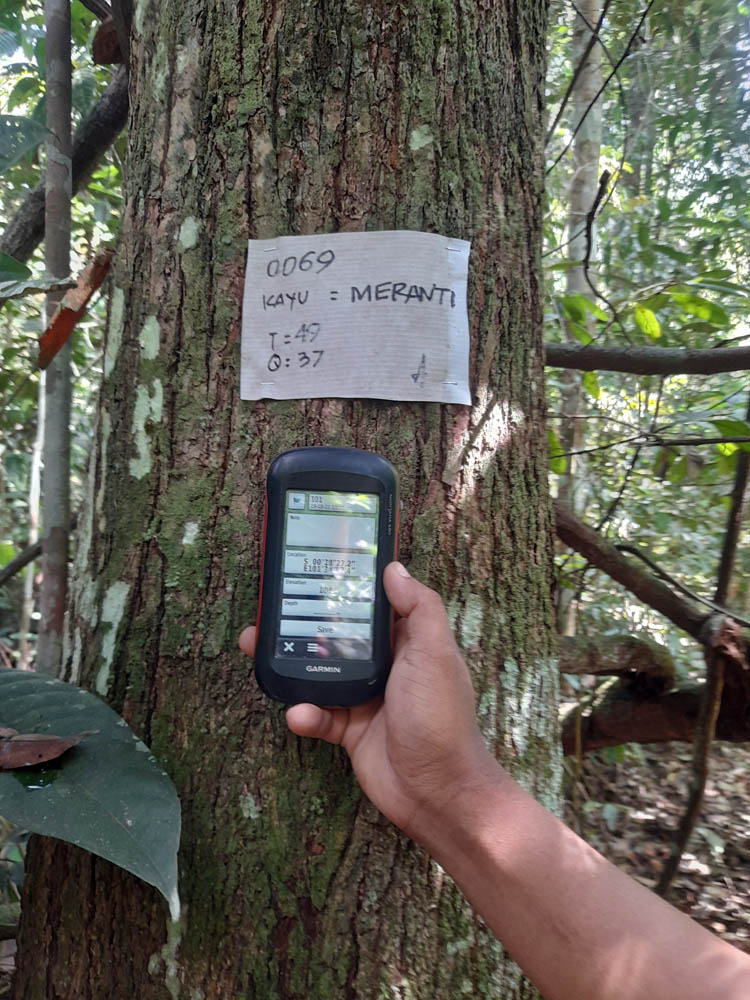 0069
KAYU = MERANTI
T = 49
Q : 37
101
Note
Location
Elevation
Depth
Save
GARMIN